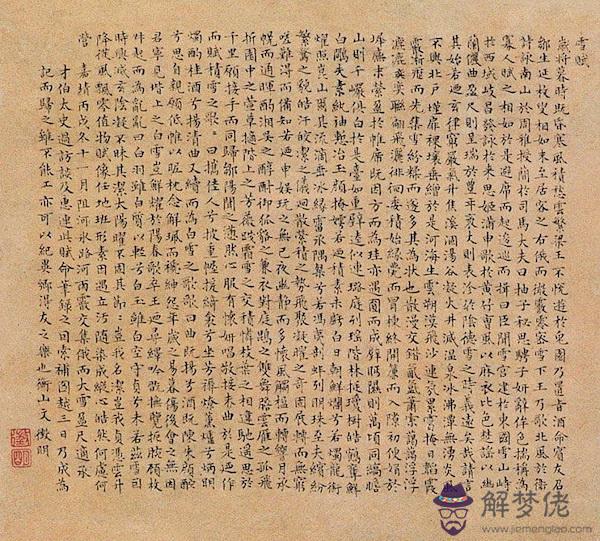 雪賦
歲將暮時既昏寒風積愁雲繁梁王不悅遊於兔園乃置旨酒命賓友召
鄒生延枚叟相如末至居客之右俄而微霰零密雪下王乃歌北風於衛
詩詠南山於周雅授簡於司馬大夫曰抽子秘思騁子妍辭侔色揣稱為
寡人賦之相如於是避席而起逡巡而揖曰臣聞雪宮建於東國雪山峙
於西域岐昌發詠於來思姬滿申歌於黃竹曹風以麻衣比色楚謠以幽
蘭儷曲盈尺則呈瑞於豐年袤丈則表沴於陰德雪之時義遠矣哉請言
其始若迺玄律窮嚴氣升焦溪涸湯谷凝火井滅溫泉冰沸潭無湧炎風
不興北戶墐扉裸壤垂繒於是河海生雲朔漠飛沙連氛累靄掩日韜霞
霰淅瀝而先集雪紛糅而遂多其為狀也散漫交錯氛氳蕭索藹藹浮浮
瀌瀌奕奕聯翩飛灑徘徊委積始緣甍而冒棟終開簾而入隙初便娟於
墀廡末縈盈於帷席既因方而為珪亦遇圓而成璧眄隰則萬頃同縞瞻
山則千巖俱白於是臺如重璧逵似連璐庭列瑤階林挺瓊樹皓鶴奪鮮
白鷴失素紈袖慙冶玉顏掩嫮若迺積素未虧白日朝鮮爛兮若燭龍銜
燿照崑山爾其流滴垂冰緣霤承隅粲兮若馮夷剖蚌列明珠至夫繽紛
繁騖之貌皓汗皦潔之儀迴散縈積之勢飛聚凝曜之奇固展轉而無窮
嗟難得而備知若迺申娛玩之無已夜幽靜而多懷風觸楹而轉響月承
幌而通暉酌湘吳之醇酎御狐狢之兼衣對庭鵾之雙舞瞻雲雁之孤飛
折園中之萱草擿階上之芳薇踐霜雪之交積憐枝葉之相違馳遙思於
千里願接手而同歸鄒陽聞之懣然心服有懷妍唱敬接末曲於是迺作
而賦積雪之歌曰攜佳人兮披重幄援綺衾兮坐芳褥燎薰爐兮炳明
燭酌桂酒兮揚清曲又續而為白雪之歌歌曰曲既揚兮酒既陳朱顏酡
兮思自親願低帷以昵枕念解珮而褫紳怨年歲之易暮傷後會之無因
君寧見階上之白雪豈鮮耀於陽春歌卒王迺尋繹吟翫撫覽扼腕顧枚
叔起而為亂亂曰白羽雖白質以輕兮白玉雖白空守貞兮未若茲雪因
時興滅玄陰凝不昧其潔太陽曜不固其節節豈我名潔豈我貞憑雲升
降從風飄零值物賦像任地班形素因遇立汚隨染成縱心皓然何慮何
營 嘉靖丙戌冬十一月阻河氷路河西霰交集俄而大雪盈尺適承
才伯太史過訪談及惠連此賦命筆錄之因素補圖越三日乃成為
記而歸之雖不能工亦可以紀異鄉得友之樂也衡山文徵明
解梦佬
www.jiemenglao.com